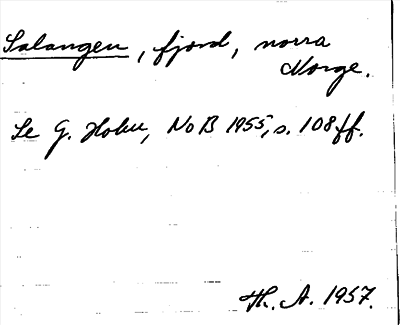 Salangen, fjord, norra
Norge.
Se G. Holm, NoB 1955, s. 108 ff.
Th. A. 1957.